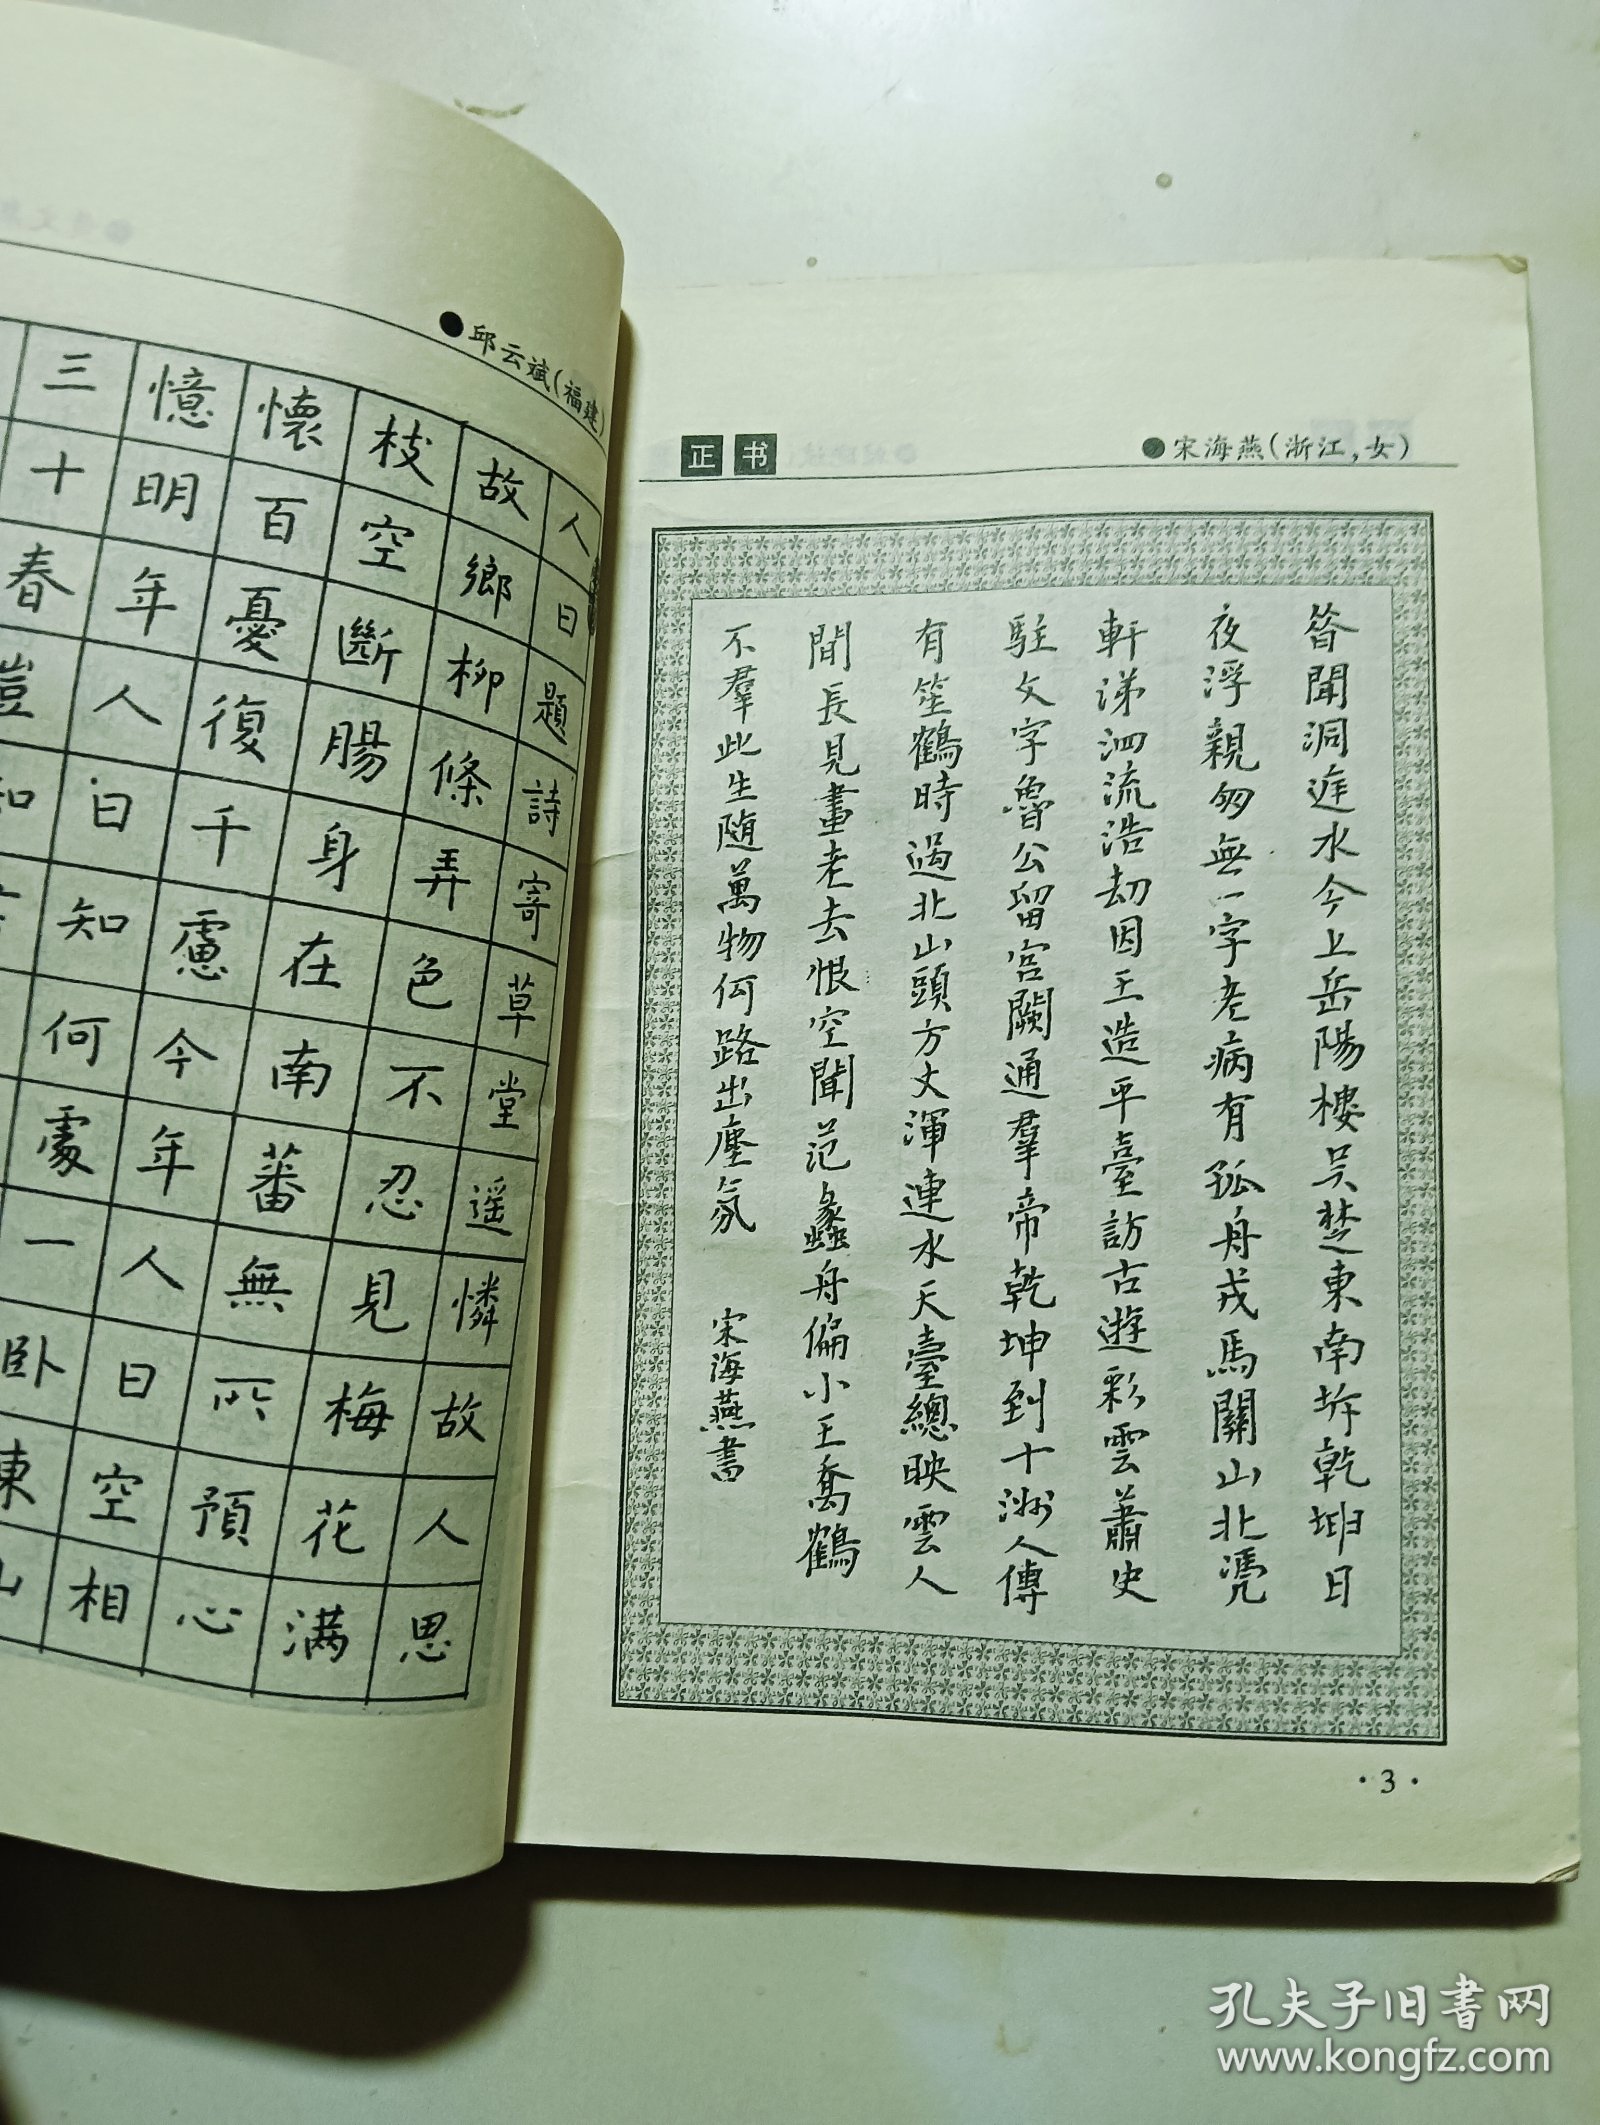 邱云斌(福建)
人日題詩寄草堂遥憐故人思
故鄉柳條弄色不忍見梅花满
枝空斷腸身在南蕃無所預心
懷百憂復千慮今年人日空相
憶明年人日知何處一卧東山
三十春豈知
正书
宋海燕(浙江,女)
昝聞洞庭水今上岳陽樓吴楚東南坼乾坤日
夜浮親朋無一字老病有孤舟戎馬關山北凭
軒涕泗流浩劫因王造平臺訪古遊彩雲蕭史
駐文字魯公留宫闕通羣帝乾坤到十洲人傳
有笙鶴時過北山頭方丈渾連水天臺總映雲人
間長見畫老去恨空聞范蠡舟偏小王喬鶴
不羣此生随萬物何路出塵氛 宋海燕書
·3·
孔夫子旧書网
www.kongfz.com